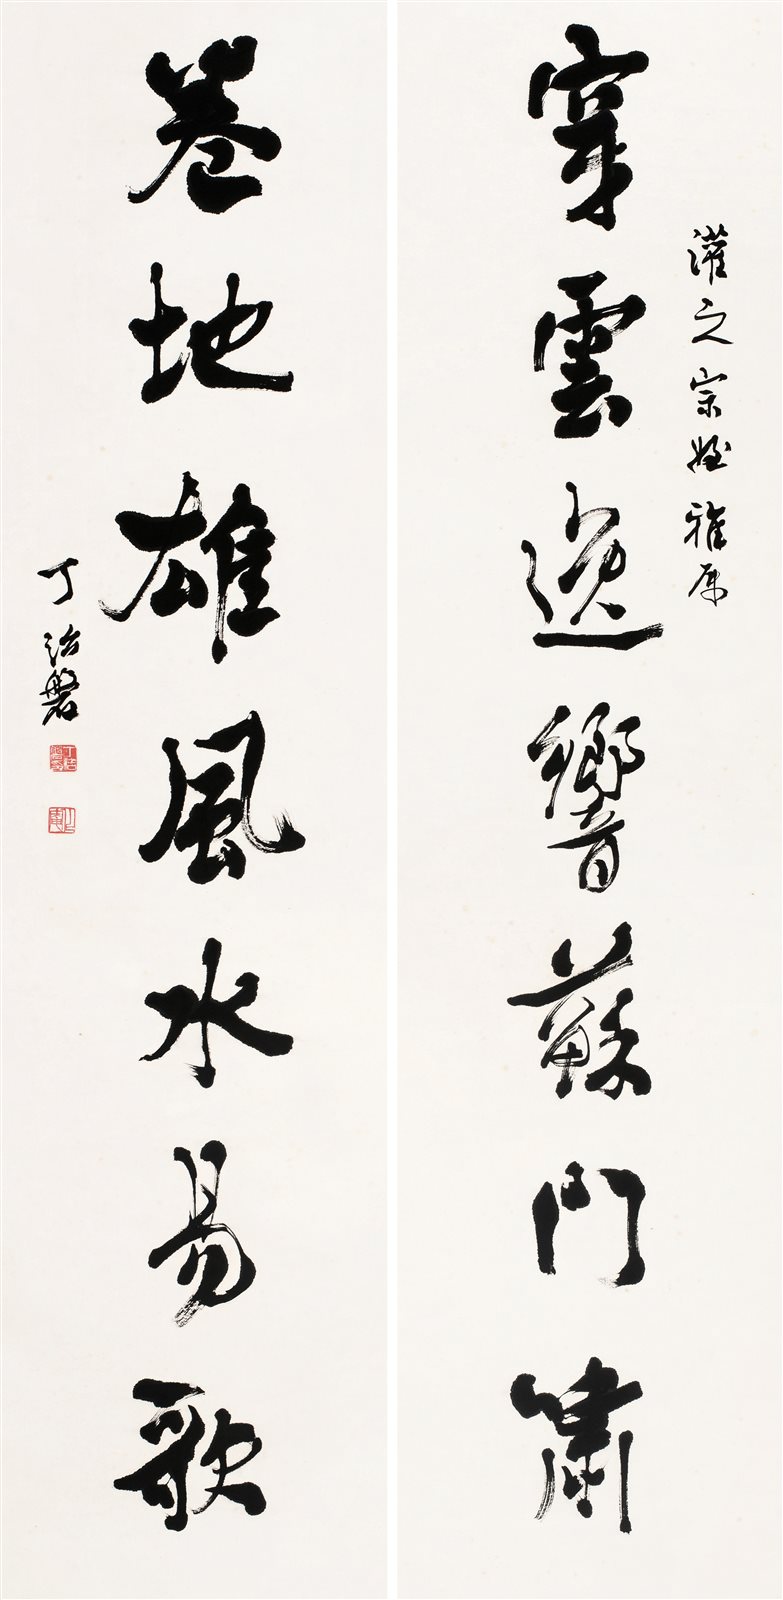 灌之宗姪雅属
穿雲逸響蘇門嘯
卷地雄風水易歌
丁治磐